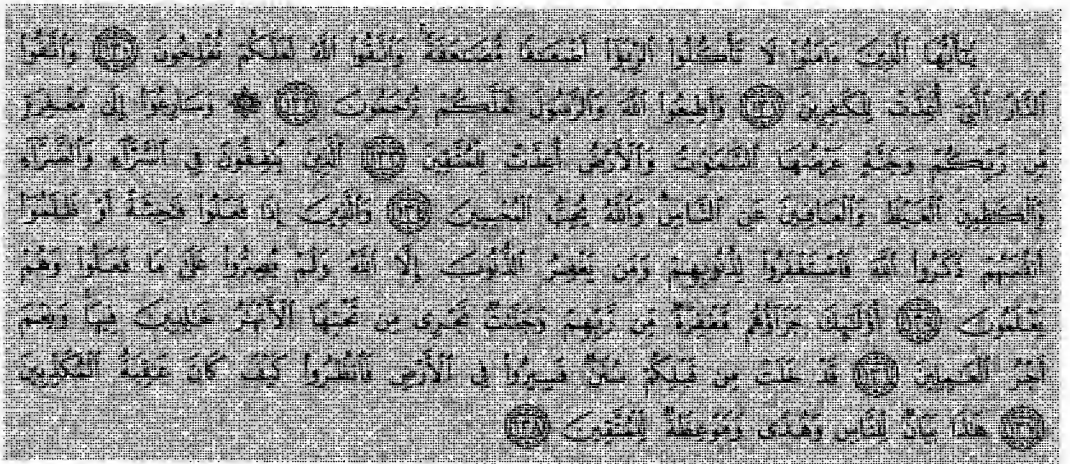 يَٰٓأَيُّهَا ٱلَّذِينَ ءَامَنُوا۟ لَا تَأْكُلُوا۟ ٱلرِّبَوٰٓا۟ أَضْعَٰفًا مُّضَٰعَفَةً وَٱتَّقُوا۟ ٱللَّهَ لَعَلَّكُمْ تُفْلِحُونَ ١٣٠ وَٱتَّقُوا۟
ٱلنَّارَ ٱلَّتِىٓ أُعِدَّتْ لِلْكَٰفِرِينَ ١٣١ وَأَطِيعُوا۟ ٱللَّهَ وَٱلرَّسُولَ لَعَلَّكُمْ تُرْحَمُونَ ١٣٢ ۞ وَسَارِعُوٓا۟ إِلَىٰ مَغْفِرَةٍ
مِّن رَّبِّكُمْ وَجَنَّةٍ عَرْضُهَا ٱلسَّمَٰوَٰتُ وَٱلْأَرْضُ أُعِدَّتْ لِلْمُتَّقِينَ ١٣٣ ٱلَّذِينَ يُنفِقُونَ فِى ٱلسَّرَّآءِ وَٱلضَّرَّآءِ
وَٱلْكَٰظِمِينَ ٱلْغَيْظَ وَٱلْعَافِينَ عَنِ ٱلنَّاسِ وَٱللَّهُ يُحِبُّ ٱلْمُحْسِنِينَ ١٣٤ وَٱلَّذِينَ إِذَا فَعَلُوا۟ فَٰحِشَةً أَوْ ظَلَمُوٓا۟
أَنفُسَهُمْ ذَكَرُوا۟ ٱللَّهَ فَٱسْتَغْفَرُوا۟ لِذُنُوبِهِمْ وَمَن يَغْفِرُ ٱلذُّنُوبَ إِلَّا ٱللَّهُ وَلَمْ يُصِرُّوا۟ عَلَىٰ مَا فَعَلُوا۟ وَهُمْ
يَعْلَمُونَ ١٣٥ أُو۟لَٰٓئِكَ جَزَآؤُهُم مَّغْفِرَةٌ مِّن رَّبِّهِمْ وَجَنَّٰتٌ تَجْرِى مِن تَحْتِهَا ٱلْأَنْهَٰرُ خَٰلِدِينَ فِيهَا وَنِعْمَ
أَجْرُ ٱلْعَٰمِلِينَ ١٣٦ قَدْ خَلَتْ مِن قَبْلِكُمْ سُنَنٌ فَسِيرُوا۟ فِى ٱلْأَرْضِ فَٱنظُرُوا۟ كَيْفَ كَانَ عَٰقِبَةُ ٱلْمُكَذِّبِينَ
١٣٧ هَٰذَا بَيَانٌ لِّلنَّاسِ وَهُدًى وَمَوْعِظَةٌ لِّلْمُتَّقِينَ ١٣٨